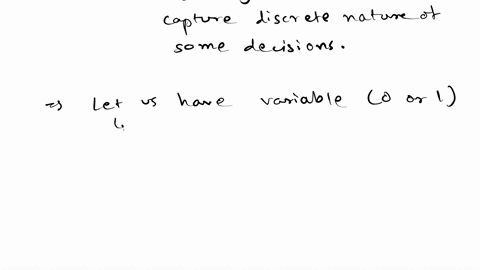 capture discrete nature of
some decisions.
⇒ Let us have variable (0 or 1)